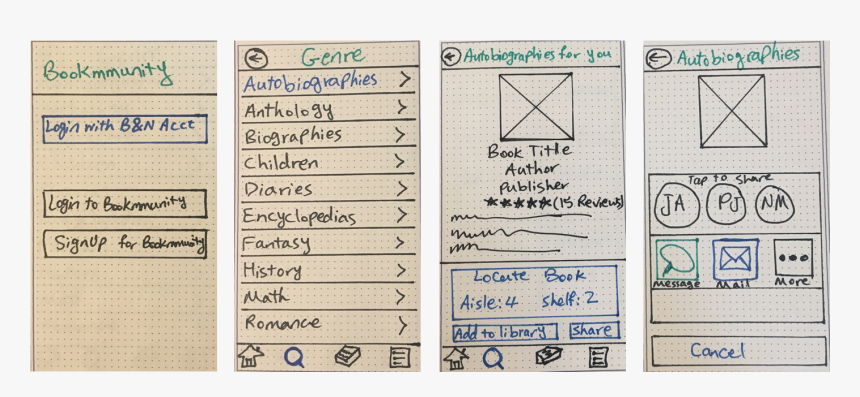 Bookmmunity
Login with B&N Acct
Login to Bookmmunity
SignUp for Bookmmunity
Genre
Autobiographies
Anthology
Biographies
Children
Diaries
Encyclopedias
Fantasy
History
Math
Romance
Autobiographies for you
Book Title
Author
Publisher
★★★★★(15 Reviews)
Locate Book
Aisle: 4 shelf: 2
Add to library share
Autobiographies
Tap to share
JA PJ NM
Message Mail More
Cancel